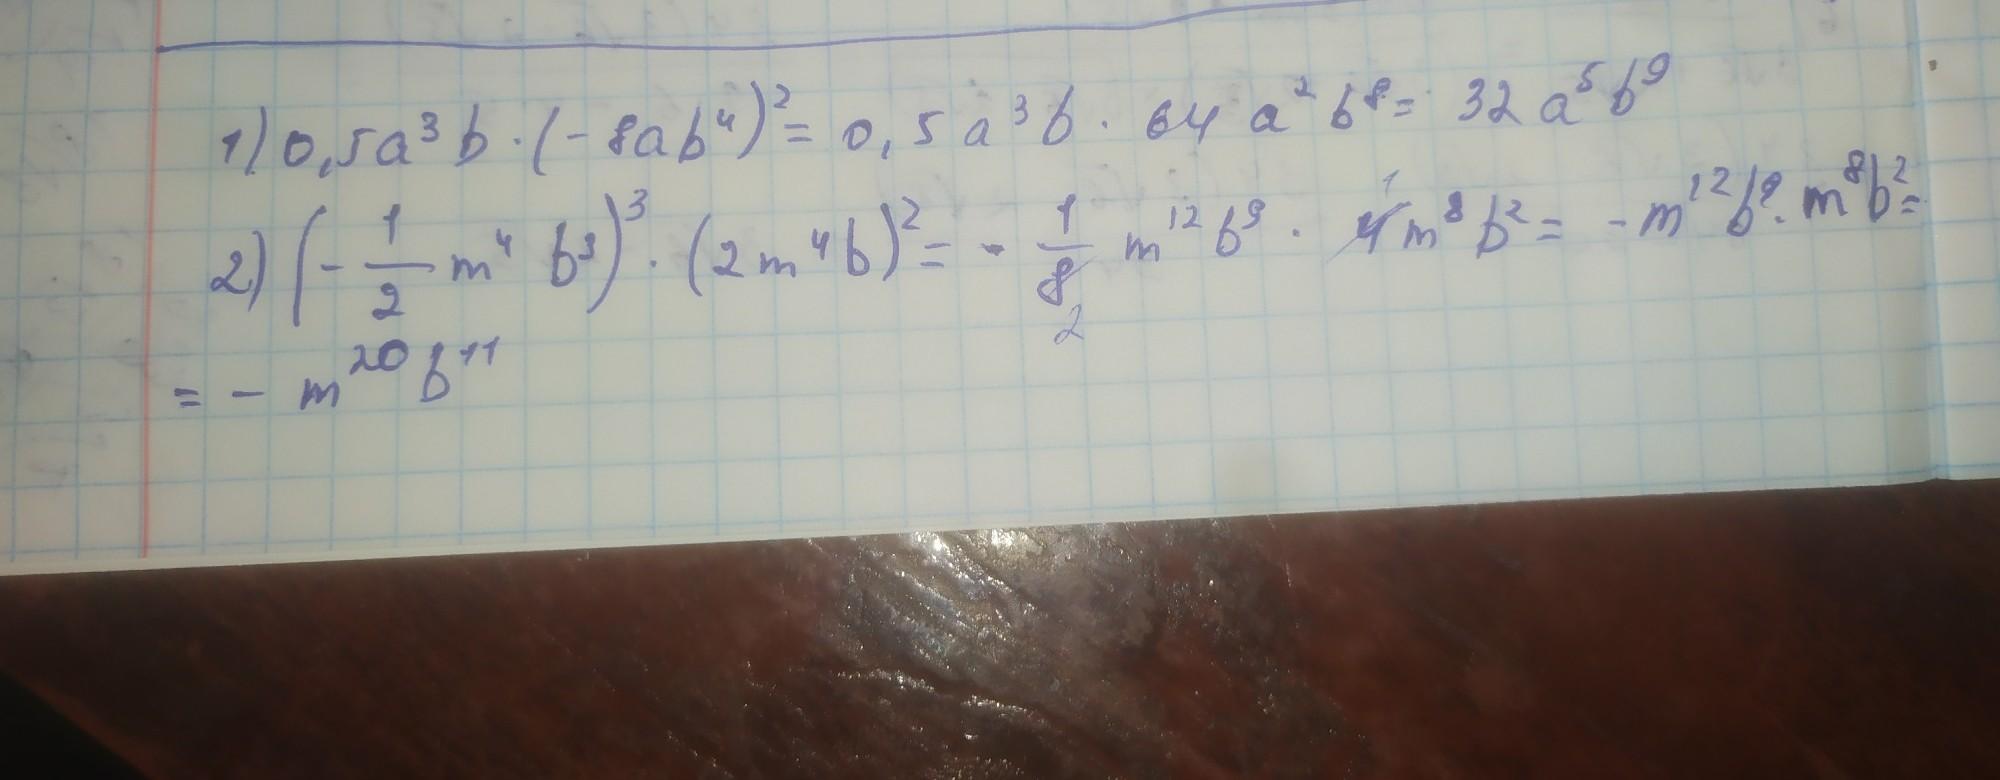 1) 0,5a³b · (-8ab⁴)² = 0,5a³b · 64a²b⁸ = 32a⁵b⁹
2) (-1/2 m⁴ b³)³ · (2m⁴b)² = - 1/8 2 m¹²b⁹ · 4 1 m⁸b² = -m¹²b⁹ · m⁸b² =
= - m²⁰b¹¹